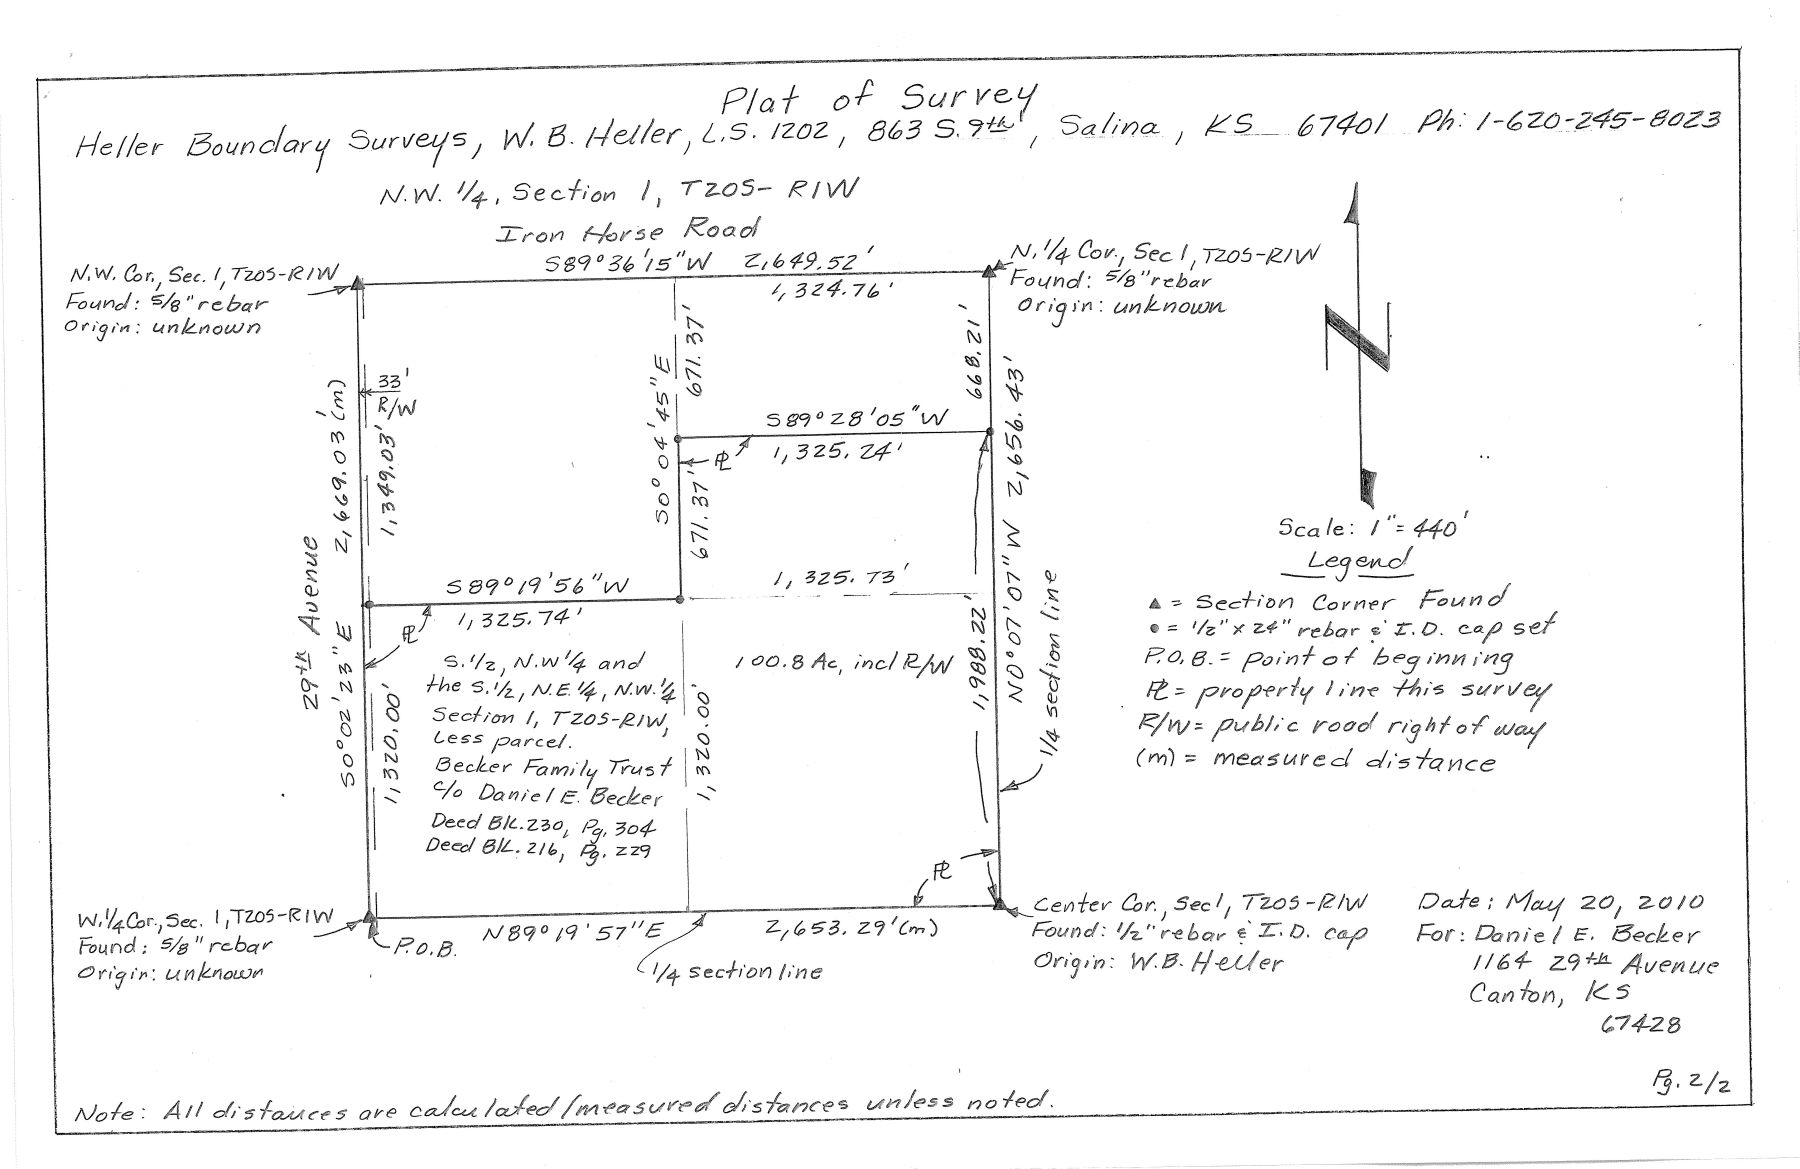 Plat of Survey
Heller Boundary Surveys, W. B. Heller, L.S. 1202, 863 S. 9th, Salina, KS 67401 Ph: 1-620-245-8023
N.W. 1/4, Section 1, T20S-R1W
Iron Horse Road
S89°36'15"W 2,649.52'
1,324.76'
N.W. Cor., Sec. 1, T20S-R1W
Found: 5/8" rebar
Origin: unknown
N. 1/4 Cor., Sec 1, T20S-R1W
Found: 5/8" rebar
Origin: unknown
33'
R/W
2,669.03'(m)
1,349.03'
S0°04'45"E
671.37'
668.21'
N0°07'07"W 2,656.43'
S89°28'05"W
1,325.24'
PL
671.37'
S89°19'56"W
1,325.74'
PL
1,325.73'
29th Avenue
S0°02'23"E
1,320.00'
S. 1/2, N.W 1/4 and
the S. 1/2, N.E. 1/4, N.W. 1/4
Section 1, T20S-R1W,
Less parcel.
Becker Family Trust
c/o Daniel E. Becker
Deed BK. 230, Pg. 304
Deed BK. 216, Pg. 229
1,320.00'
100.8 Ac, incl R/W
1,988.22'
1/4 section line
PL
W. 1/4 Cor., Sec. 1, T20S-R1W
Found: 5/8" rebar
Origin: unknown
P.O.B.
N89°19'57"E
2,653.29'(m)
1/4 section line
Center Cor., Sec 1, T20S-R1W
Found: 1/2" rebar & I.D. cap
Origin: W.B. Heller
N
Scale: 1"=440'
Legend
▲ = Section Corner Found
● = 1/2" x 24" rebar & I.D. cap set
P.O.B. = point of beginning
PL = property line this survey
R/W = public road right of way
(m) = measured distance
Date: May 20, 2010
For: Daniel E. Becker
1164 29th Avenue
Canton, KS
67428
Pg. 2/2
Note: All distances are calculated/measured distances unless noted.